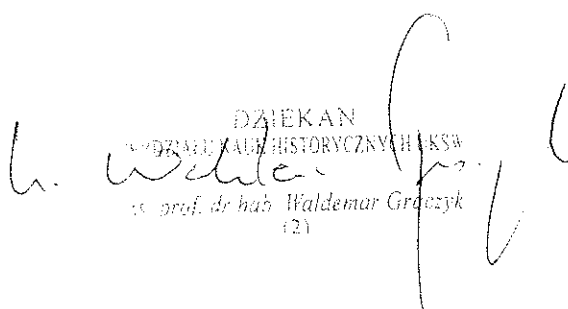 DZIEKAN
WYDZIAŁU NAUK HISTORYCZNYCH UKSW
ks. prof. dr hab. Waldemar Graczyk
(2)